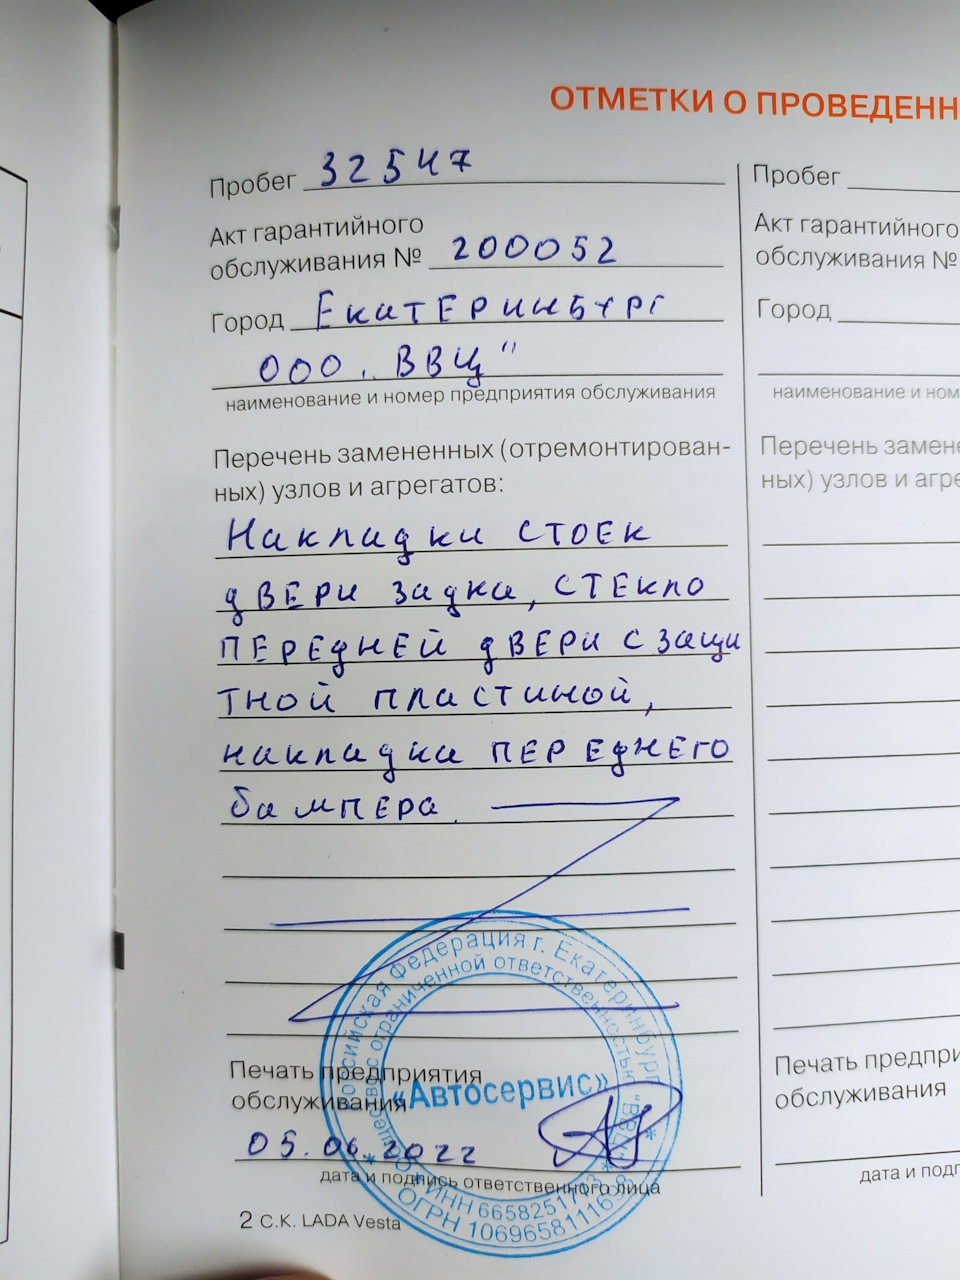 ОТМЕТКИ О ПРОВЕДЕНН
Пробег 32547
Акт гарантийного
обслуживания № 200052
Город Екатеринбург
ООО „ВВЦ"
наименование и номер предприятия обслуживания
Перечень замененных (отремонтирован-
ных) узлов и агрегатов:
Накладки стоек
двери задка, стекло
передней двери с защи
тной пластиной,
накладка переднего
бампера.
Российская Федерация г. Екатеринбург
Общество с ограниченной ответственностью "ВВЦ"
«Автосервис»
Печать предприятия
обслуживания
05.06.2022
дата и подпись ответственного лица
* ИНН
ОГРН
2 С.К. LADA Vesta
Пробег
Акт гарантийного
обслуживания №
Город
наименование и ном
Перечень замене
ных) узлов и агре
Печать предпри
обслуживания
дата и подп